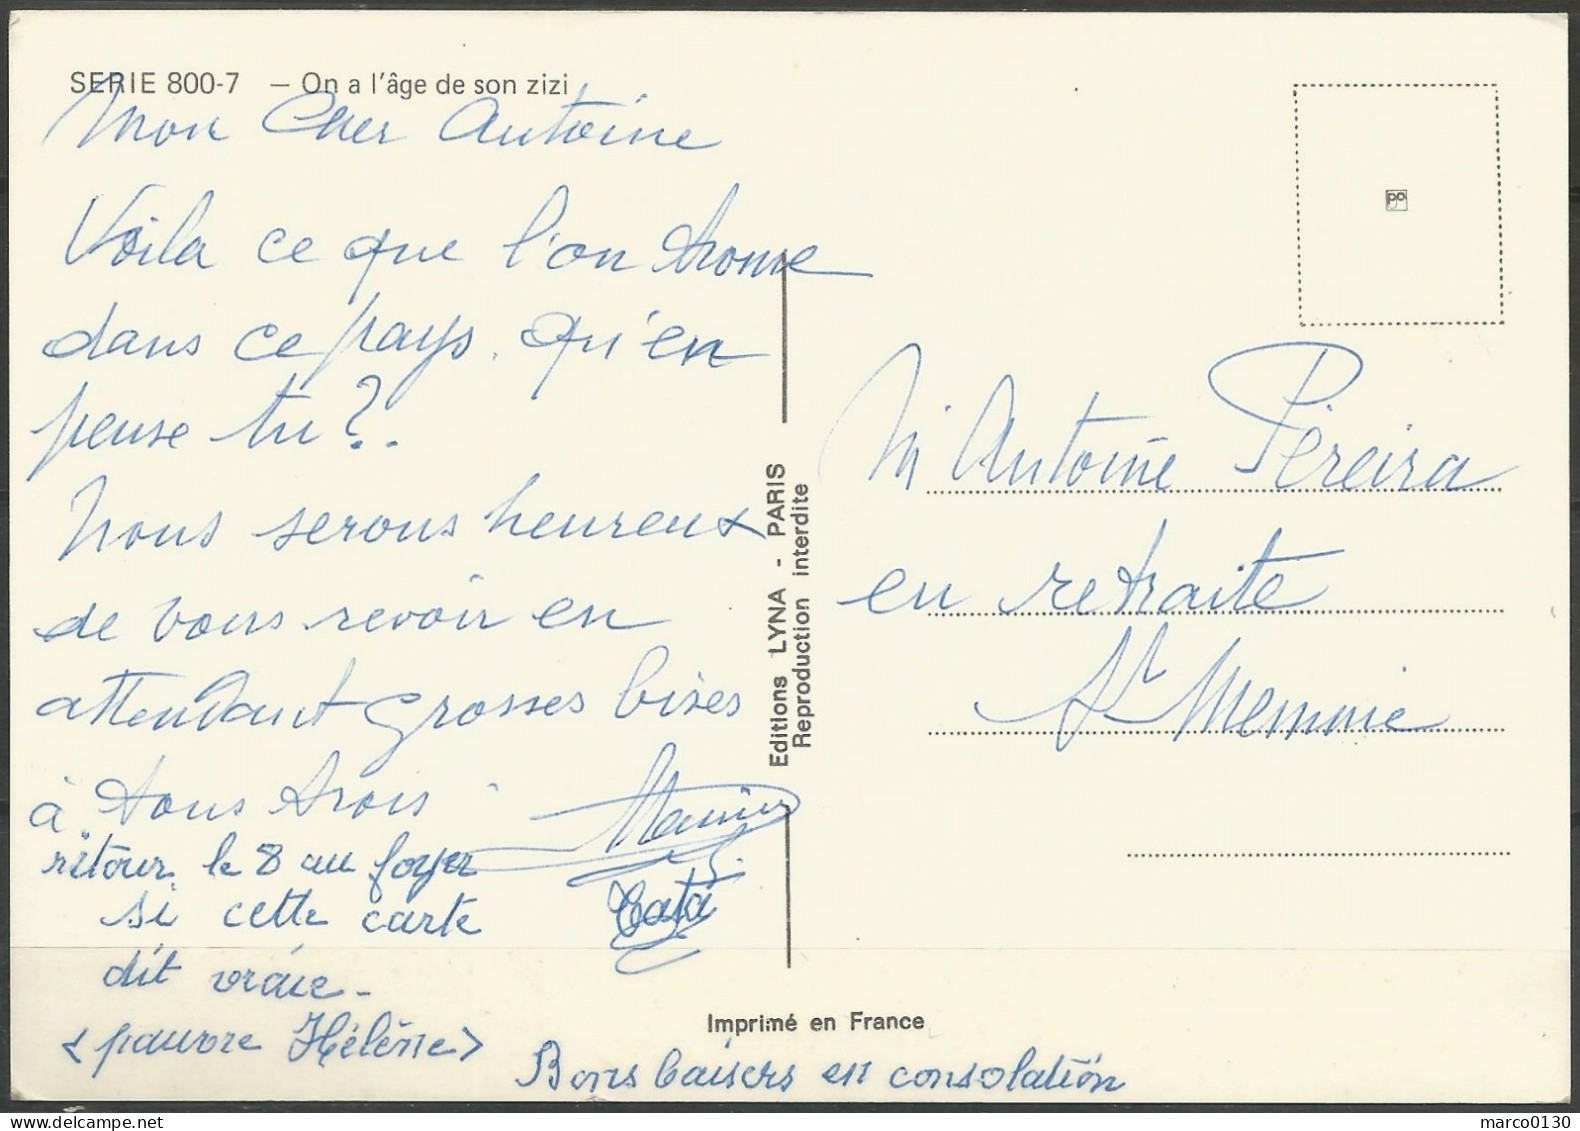 SERIE 800-7 — On a l'âge de son zizi
Mon Cher Antoine
Voila ce que l'on trouve
dans ce pays. qu'en
pense tu ?.
Nous serons heureux
de vous revoir en
attendant grosses bises
à tous trois
retour le 8 au foyer
si cette carte
dit vraie -
<pauvre Hélène>
Bons baisers en consolation
Tata
Editions LYNA - PARIS
Reproduction interdite
Imprimé en France
po
M Antoine Péreira
en retraite
St Memmie
marco0130